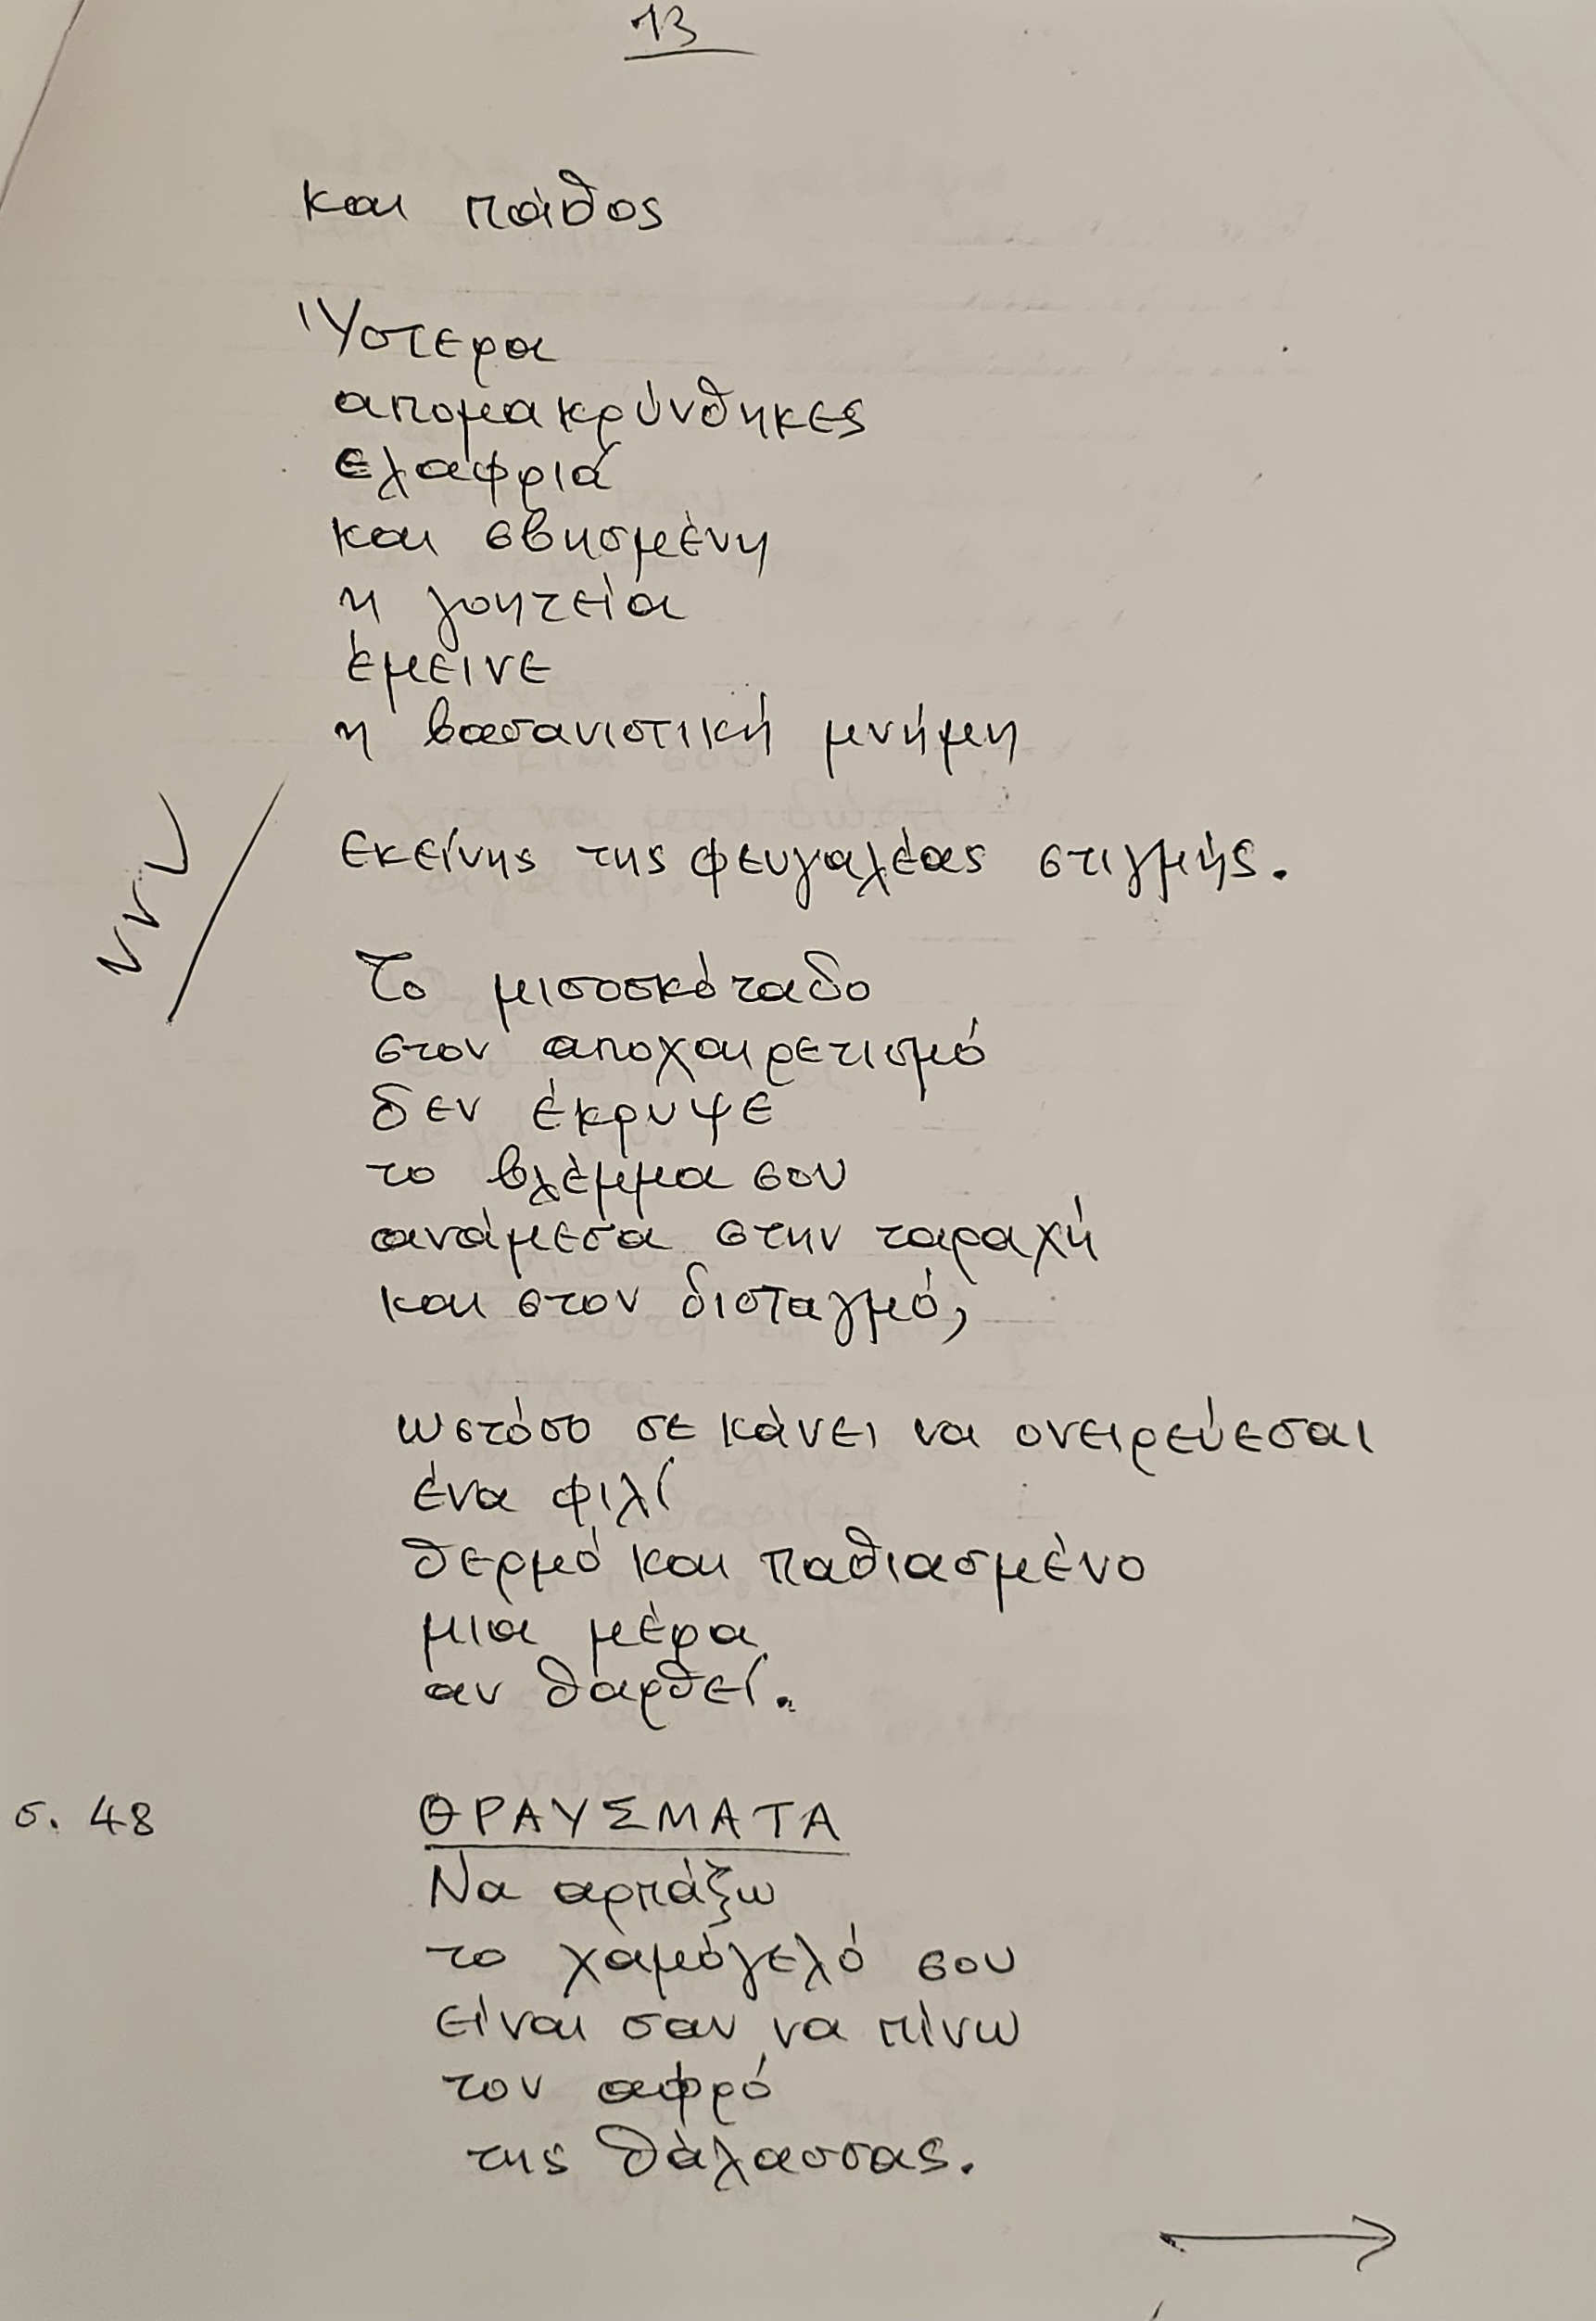 13
και πάθος
Ύστερα
απομακρύνθηκες
ελαφριά
και σβησμένη
η γοητεία
έμεινε
η βασανιστική μνήμη
εκείνης της φευγαλέας στιγμής.
Το μισοσκόταδο
στον αποχαιρετισμό
δεν έκρυψε
το βλέμμα σου
ανάμεσα στην ταραχή
και στον δισταγμό,
ωστόσο σε κάνει να ονειρεύεσαι
ένα φιλί
θερμό και παθιασμένο
μια μέρα
αν θαρθεί.
σ. 48 ΘΡΑΥΣΜΑΤΑ
Να αρπάξω
το χαμόγελό σου
είναι σαν να πίνω
τον αφρό
της θάλασσας.